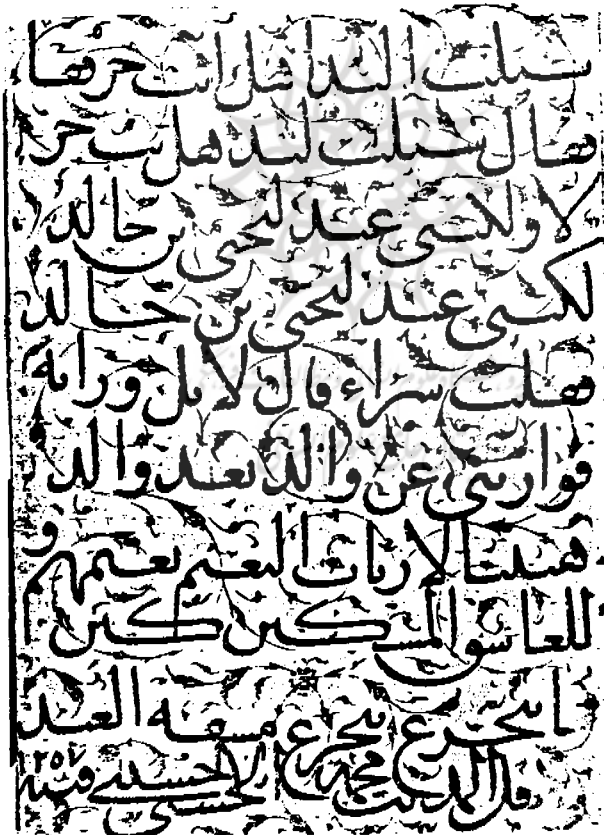 سئلت الندا هل انت حر فقا
فقال سئلت لند هل نت حر
لا ولكننى عبد ليحيى بن خالد
لكننى عبد ليحيى بن خالد
فقلت شراء قال لا بل وراثة
توارثنى عن والد بعد والد
هنيئا لارباب النعيم نعيمهم و
للعاشق المسكين كين
ما يتجرع يتجرع مشقه العبد
محمد الحسنى الحسينى ١٢٥٧